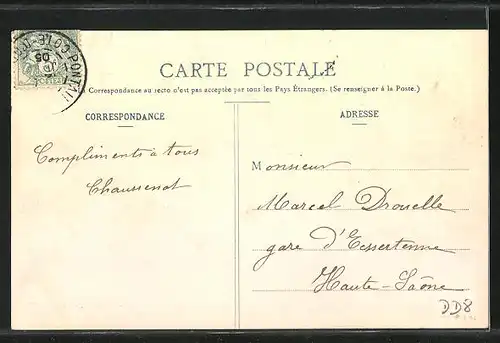 PONTAILLER
COTE-D'OR
05
CARTE POSTALE
La Correspondance au recto n'est pas acceptée par tous les Pays Étrangers. (Se renseigner à la Poste.)
CORRESPONDANCE
ADRESSE
Compliments à tous
Chaussenot
Monsieur
Marcel Drouelle
gare d'Essertenne
Haute-Saône
DD8